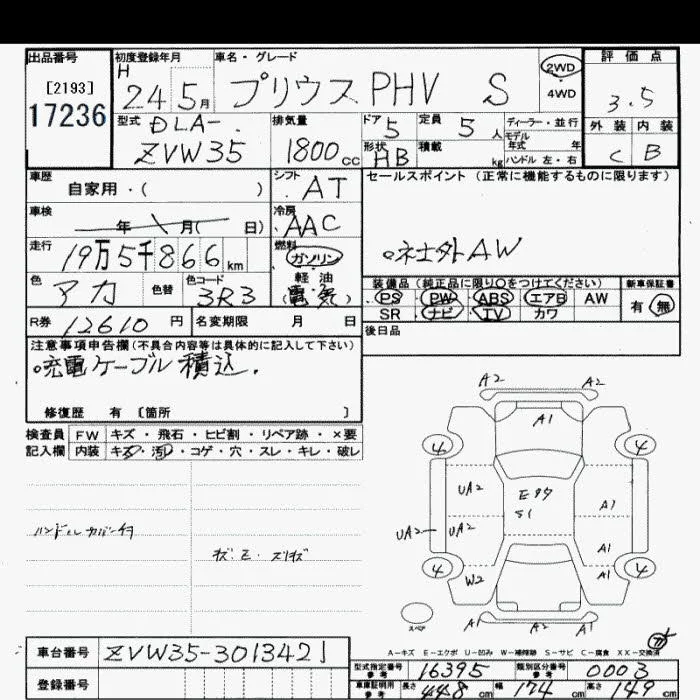 出品番号 初度登録年月 車名・グレード 評価点
[2193] H 2WD
17236 24 5月 プリウスPHV S 4WD 3.5
型式 排気量 ドア 定員 ディーラー・並行 外装 内装
DLA- 5 5人 モデル年式 年
ZVW35 1800cc 形状 HB 積載 kg ハンドル 左・右 C B
車歴 シフト セールスポイント (正常に機能するものに限ります)
自家用・( ) AT
車検 冷房
年 月( 日) AAC
走行 燃料 社外AW
19万5千866km ガソリン
色 色替 色コード 軽油 装備品 (純正品に限り○をつけてください) 新車保証書
アカ 3R3 (電気) PS PW ABS エアB AW 有・無
R券 12610円 名変期限 月 日 SR ナビ TV カワ
後日品
注意事項申告欄(不具合内容等は具体的に記入して下さい)
充電ケーブル積込.
修復歴 有 [箇所 ]
検査員 FW キズ・飛石・ヒビ割・リペア跡・×要
記入欄 内装 キズ・汚・コゲ・穴・スレ・キレ・破レ
A2 A2
A1
4 4
UA2 E97 A1
S1
UA2 UA2 A1
4 W2 A1 4
スペア A1 A2 A1
ハンドルカバー付
A-キズ E-エクボ U-凹み W-補修跡 S-サビ C-腐食 XX-交換済
車台番号 ZVW35-3013421
登録番号
型式指定番号 参考 16395 類別区分番号 参考 0003
車庫証明用 参考 長さ 448cm 幅 174cm 高さ 149cm